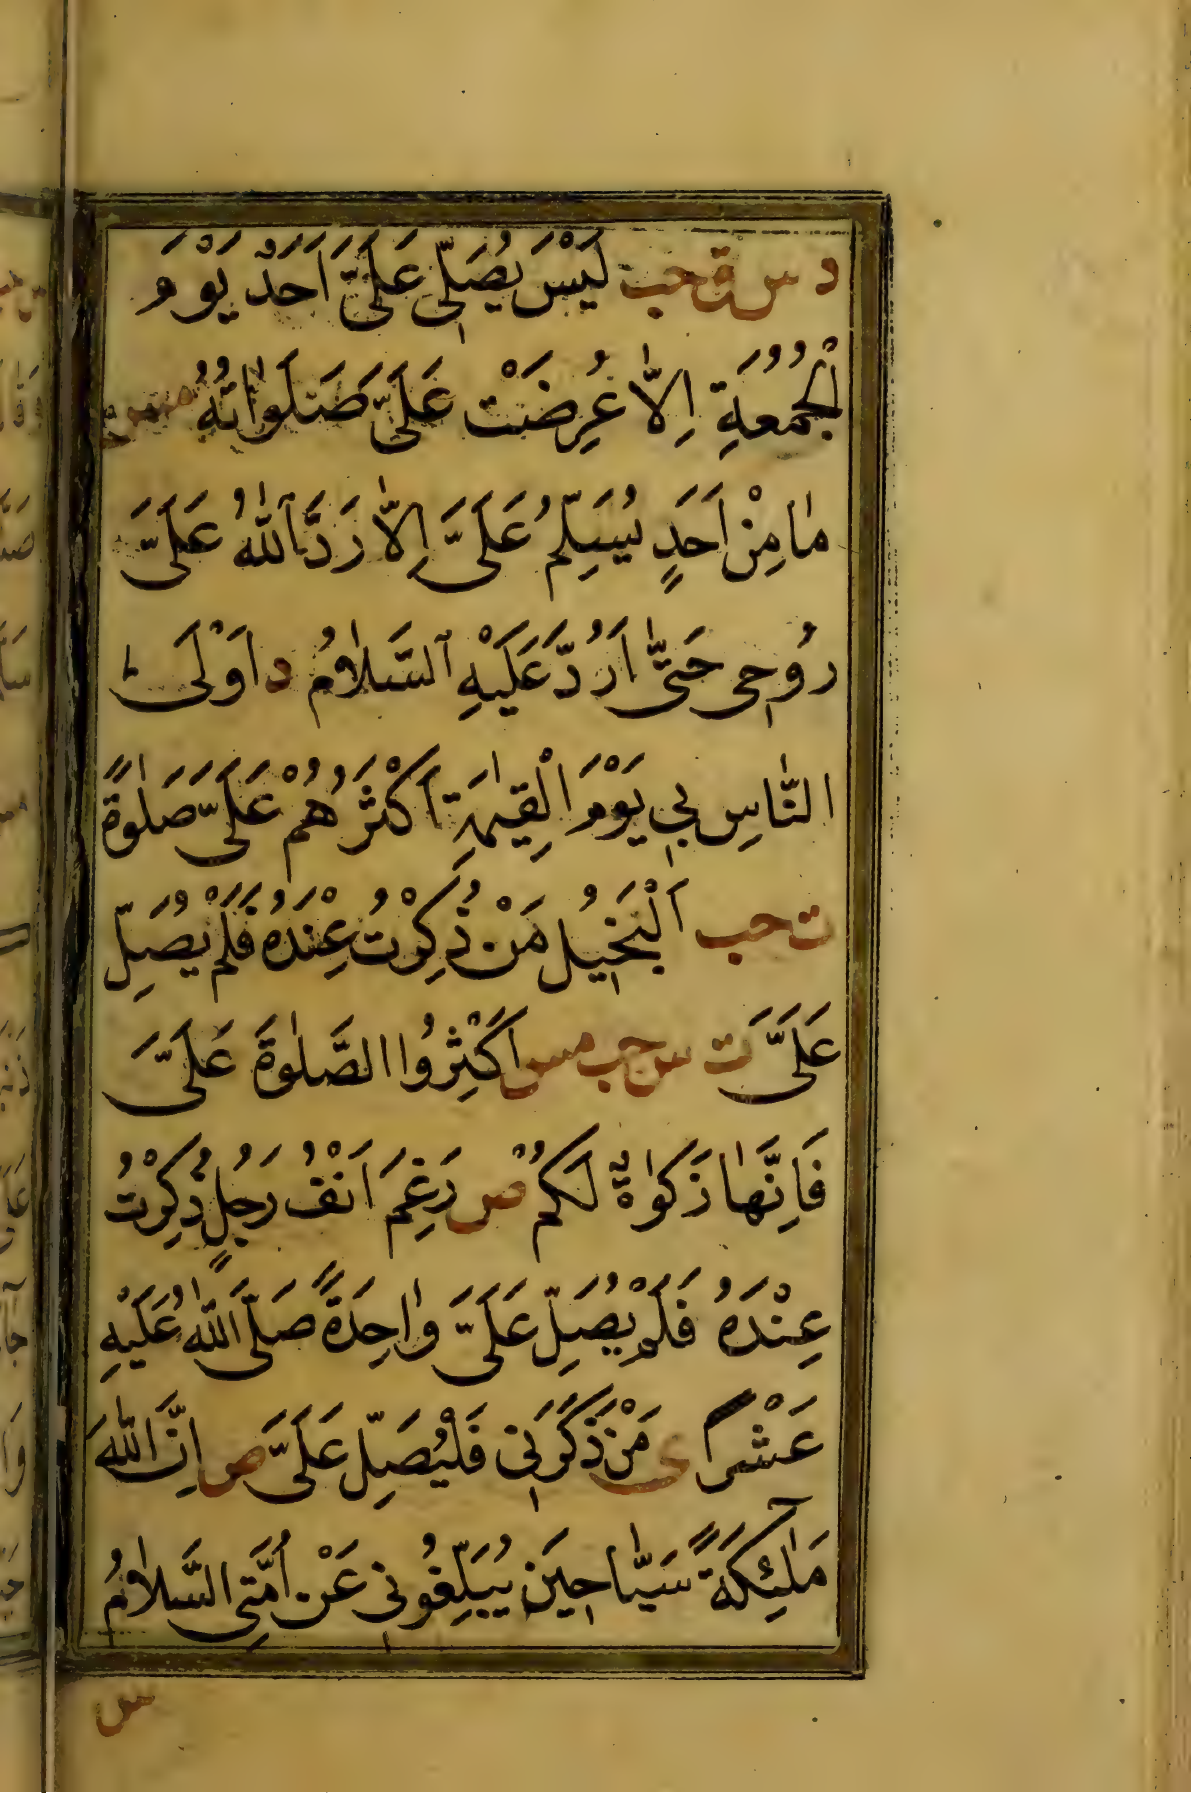 د س ق حب لَيْسَ يُصَلِّي عَلَيَّ اَحَدٌ يَوْمَ
الْجُمُعَةِ اِلَّا عُرِضَتْ عَلَيَّ صَلَوٰاتُهُ مس
مٰا مِنْ اَحَدٍ يُسَلِّمُ عَلَيَّ اِلَّا رَدَّ اللّٰهُ عَلَيَّ
رُوحِي حَتّٰى اَرُدَّ عَلَيْهِ السَّلٰامُ د اَوْلَى
النّٰاسِ بِي يَوْمَ الْقِيٰمَةِ اَكْثَرُهُمْ عَلَيَّ صَلٰوةً
ت حب اَلْبَخِيلُ مَنْ ذُكِرْتُ عِنْدَهُ فَلَمْ يُصَلِّ
عَلَيَّ ت س حب مس اَكْثِرُوا الصَّلٰوةَ عَلَيَّ
فَاِنَّهٰا زَكٰوةٌ لَكُمْ ص رَغِمَ اَنْفُ رَجُلٍ ذُكِرْتُ
عِنْدَهُ فَلَمْ يُصَلِّ عَلَيَّ وٰاحِدَةً صَلَّى اللّٰهُ عَلَيْهِ
عَشْراً ى مَنْ ذَكَرَنِي فَلْيُصَلِّ عَلَيَّ ص اِنَّ اللّٰهَ
مَلٰئِكَةً سَيّٰاحِينَ يُبَلِّغُونِي عَنْ اُمَّتِي السَّلٰامُ
س